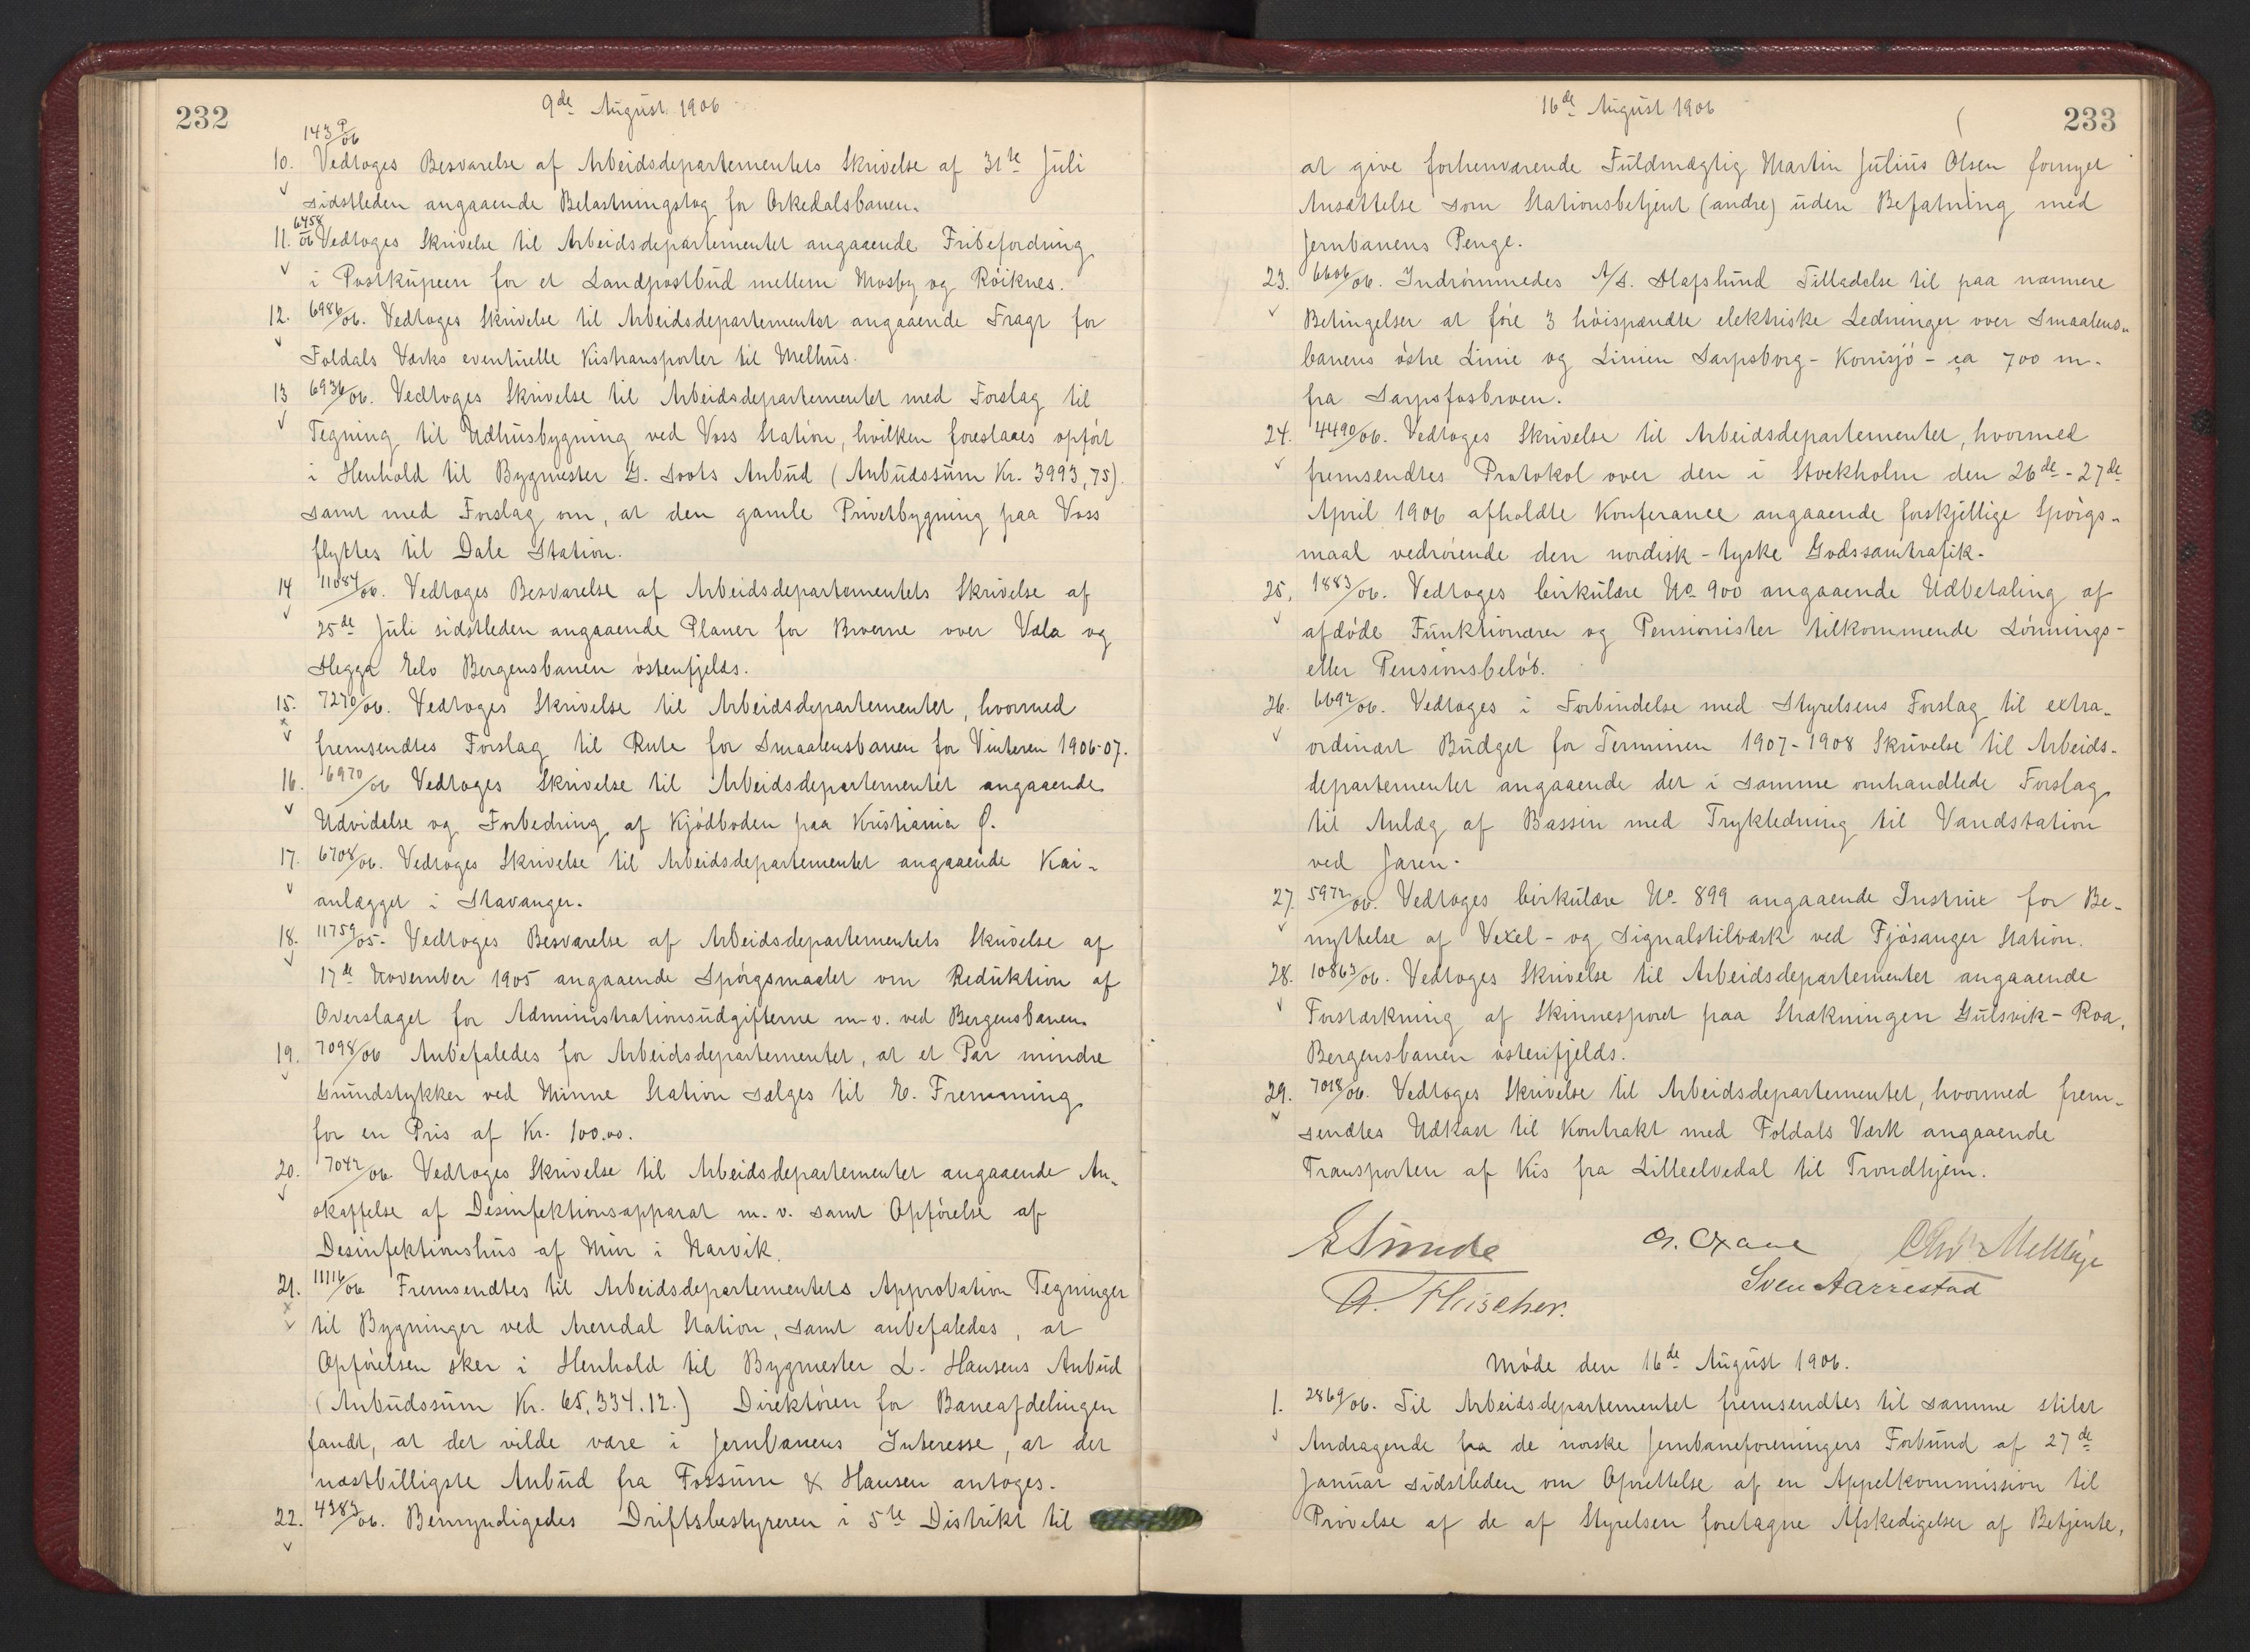 232
9de August 1906
143 P/06
10. Vedtoges Besvarelse af Arbeidsdepartementets Skrivelse af 31te Juli
sidstleden angaaende Belastningstog for Orkedalsbanen.
11. 6458/06 Vedtoges Skrivelse til Arbeidsdepartementet angaaende Fribefordring
i Postkupeen for et Landpostbud mellem Mosby og Röiknes.
12. 6986/06. Vedtoges Skrivelse til Arbeidsdepartementet angaaende Fragt for
Foldals Værks eventuelle Kistransporter til Melhus.
13 6936/06. Vedtoges Skrivelse til Arbeidsdepartementet med Forslag til
Tegning til Udhusbygning ved Voss Station, hvilken foreslaaes opført
i Henhold til Bygmester G. Soots Anbud (Anbudssum Kr. 3993,75)
samt med Forslag om, at den gamle Privetbygning paa Voss
flyttes til Dale Station.
14 11084/06. Vedtoges Besvarelse af Arbeidsdepartementets Skrivelse af
25de Juli sidstleden angaaende Planer for Broerne over Vala og
Hegga Elv Bergensbanen østenfjelds.
15. 7270/06. Vedtoges Skrivelse til Arbeidsdepartementet, hvormed
fremsendtes Forslag til Rute for Smaalensbanen for Vinteren 1906-07.
16. 6970/06 Vedtoges Skrivelse til Arbeidsdepartementet angaaende
Udvidelse og Forbedring af Kjødboden paa Kristiania Ø.
17. 6708/06. Vedtoges Skrivelse til Arbeidsdepartementet angaaende Kai-
anlægget i Stavanger.
18. 11759/05. Vedtoges Besvarelse af Arbeidsdepartementets Skrivelse af
17de November 1905 angaaende Spørgsmaalet om Reduktion af
Overslaget for Administrationsudgifterne m.v. ved Bergensbanen.
19. 7098/06 Anbefaledes for Arbeidsdepartementet, at et Par mindre
Grundstykker ved Minne Station sælges til E. Fremming
for en Pris af Kr. 100.00.
20. 7042/06 Vedtoges Skrivelse til Arbeidsdepartementet angaaende An-
skaffelse af Desinfektionsapparat m.v. samt Opførelse af
Desinfektionshus af Mur i Narvik.
21. 11116/06 Fremsendtes til Arbeidsdepartementets Approbation Tegninger
til Bygninger ved Arendal Station, samt anbefaledes, at
Opførelsen sker i Henhold til Bygmester L. Hansens Anbud
(Anbudssum Kr. 65,334.12.) Direktøren for Baneafdelingen
fandt, at det vilde være i Jernbanens Interesse, at det
næstbilligste Anbud fra Fossum & Hansen antoges.
22. 4383/06. Bemyndigedes Driftsbestyreren i 5te Distrikt til
233
16de August 1906
at give forhenværende Fuldmægtig Martin Julius Olsen fornyet
Ansættelse som Stationsbetjent (andre) uden Befatning med
Jernbanens Penge.
23. 6606/06. Indrømmedes A/S. Hafslund Tilladelse til paa nærmere
Betingelser at føre 3 høispændte elektriske Ledninger over Smaalens-
banens østre Linie og Linien Sarpsborg - Kornsjø - ca 700 m.
fra Sarpsfosbroen.
24. 4490/06. Vedtoges Skrivelse til Arbeidsdepartementet, hvormed
fremsendtes Protokol over den i Stockholm den 26de - 27de
April 1906 afholdte Konferance angaaende forskjellige Spørgs-
maal vedrørende den nordisk - tyske Godssamtrafik.
25. 1883/06. Vedtoges Cirkulære No 900 angaaende Udbetaling af
afdøde Funktionærer og Pensionister tilkommende Lønnings-
eller Pensionsbeløb.
26. 6692/06. Vedtoges i Forbindelse med Styrelsens Forslag til extra-
ordinært Budget for Terminen 1907-1908 Skrivelse til Arbeids-
departementet angaaende det i samme omhandlede Forslag
til Anlæg af Bassin med Trykledning til Vandstation
ved Jaren.
27. 5972/06. Vedtoges Cirkulære No. 899 angaaende Instrux for Be-
nyttelse af Vexel- og Signalstilværk ved Fjøsanger Station.
28. 10863/06. Vedtoges Skrivelse til Arbeidsdepartementet angaaende
Forstærkning af Skinnesporet paa Strækningen Gulsvik - Roa,
Bergensbanen østenfjelds.
29. 7018/06. Vedtoges Skrivelse til Arbeidsdepartementet, hvormed frem-
sendtes Udkast til Kontrakt med Foldals Værk angaaende
Transporten af Kis fra Lilleelvedal til Trondhjem.
E Sunde
Chr Mellbye
Sven Aarrestad
A. Fleischer.
Møde den 16de August 1906.
1. 2869/06. Til Arbeidsdepartementet fremsendtes til samme stilet
Andragende fra de norske Jernbaneforeningers Forbund af 27de
Januar sidstleden om Oprettelse af en Appelkommission til
Prøvelse af de af Styrelsen foretagne Afskedigelser af Betjente,